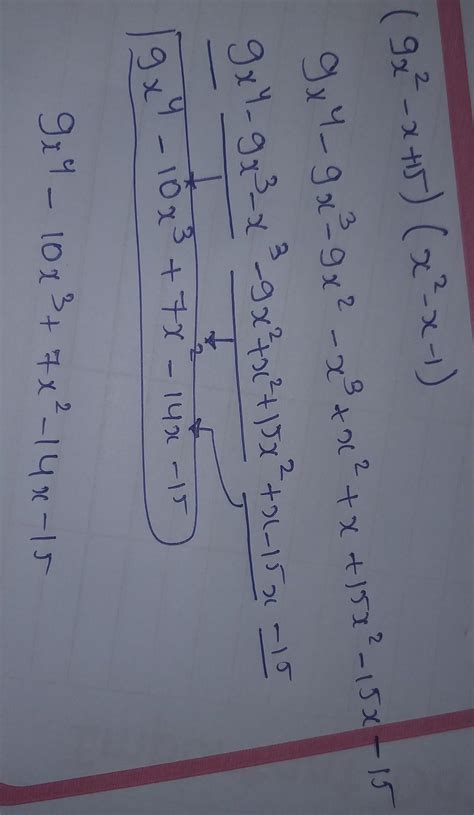 (9x² - x + 15) (x² - x - 1)
9x⁴ - 9x³ - 9x² - x³ + x² + x + 15x² - 15x - 15
9x⁴ - 9x³ - x³ - 9x² + x² + 15x² + x - 15x - 15
9x⁴ - 10x³ + 7x² - 14x - 15
9x⁴ - 10x³ + 7x² - 14x - 15